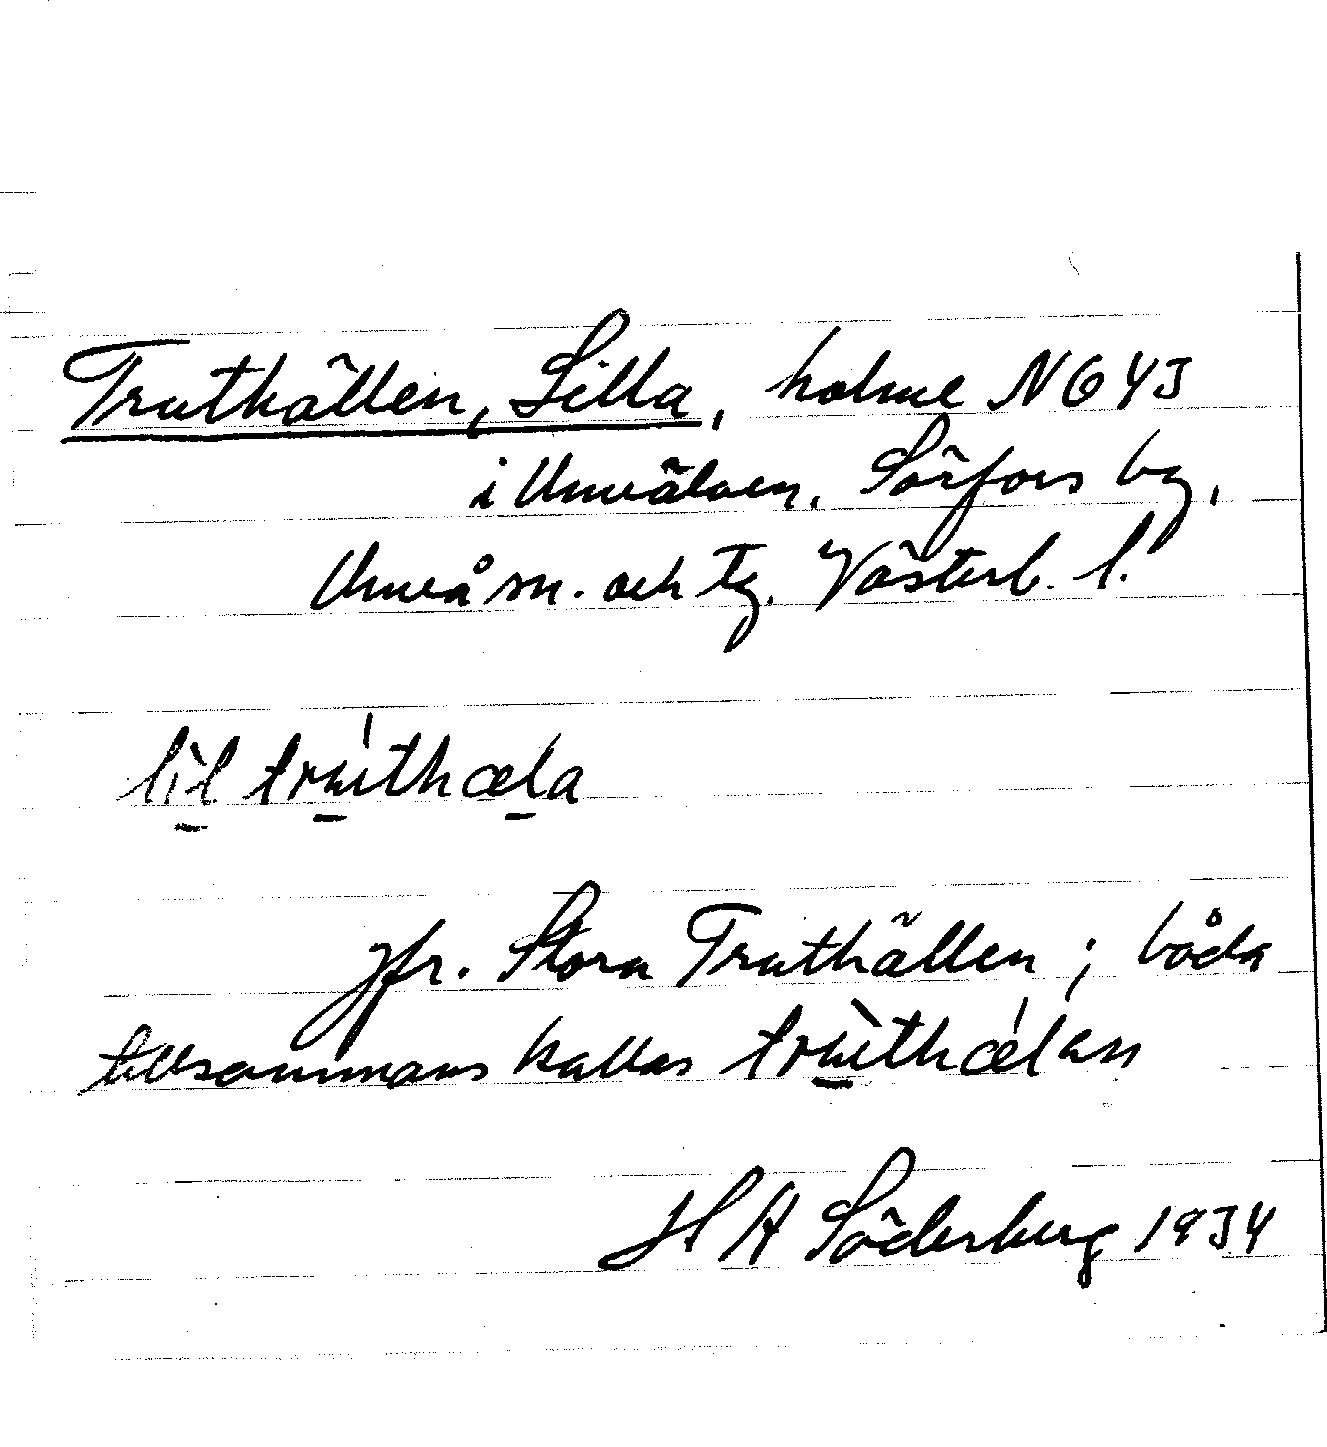 Truthällen, Lilla, holme N643
i Umeälven. Sörfors by,
Umeå sn. och tg. Västerb. l.
lìl trúthæla
jfr. Stora Truthällen; båda
tillsammans kallas trùthǽlan
H A Söderberg 1934